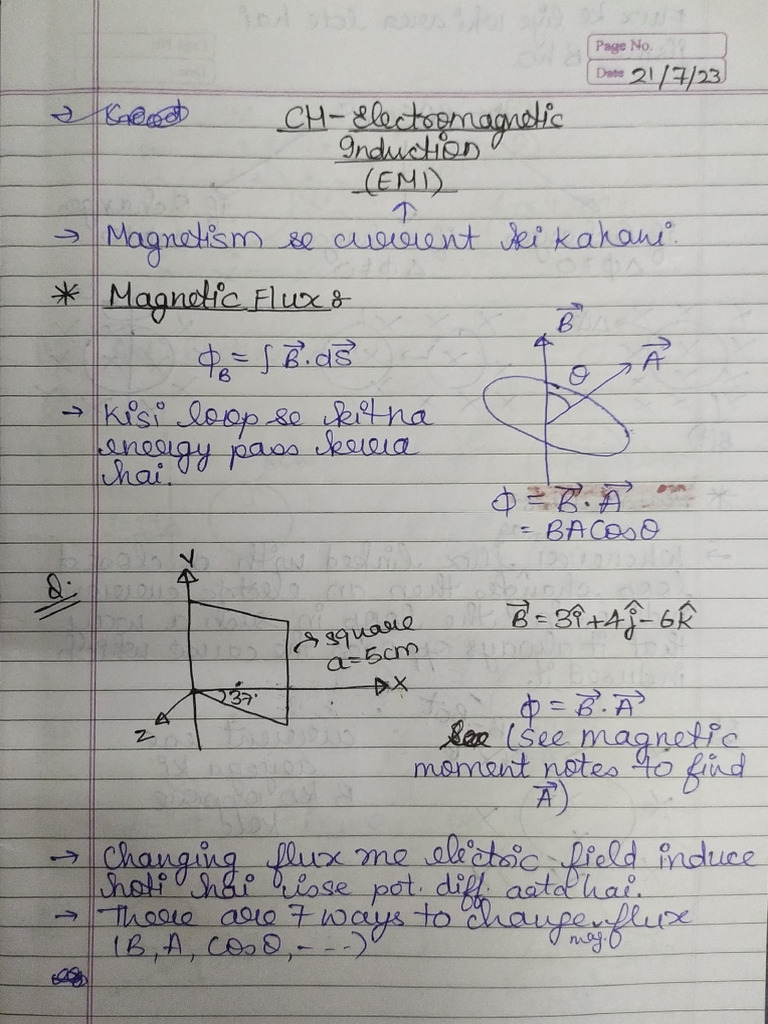 Page No.
Date 21/7/23
→ CH- Electromagnetic
Induction
(EMI)
↑
→ Magnetism se current ki kahani.
* Magnetic Flux :
B⃗
θ
A⃗
ϕ_B = ∫ B⃗ . dS⃗
→ Kisi loop se kitna
energy pass kerra
hai.
ϕ = B⃗ . A⃗
= BA Cosθ
Q.
Y
square
a = 5cm
B⃗ = 3î + 4ĵ - 6k̂
X
37°
Z
ϕ = B⃗ . A⃗
(see magnetic
moment notes to find
A⃗)
→ Changing flux me electric field induce
hoti hai isse pot. diff. aata hai.
→ There are 7 ways to change mag. flux
(B, A, Cosθ, - - -)